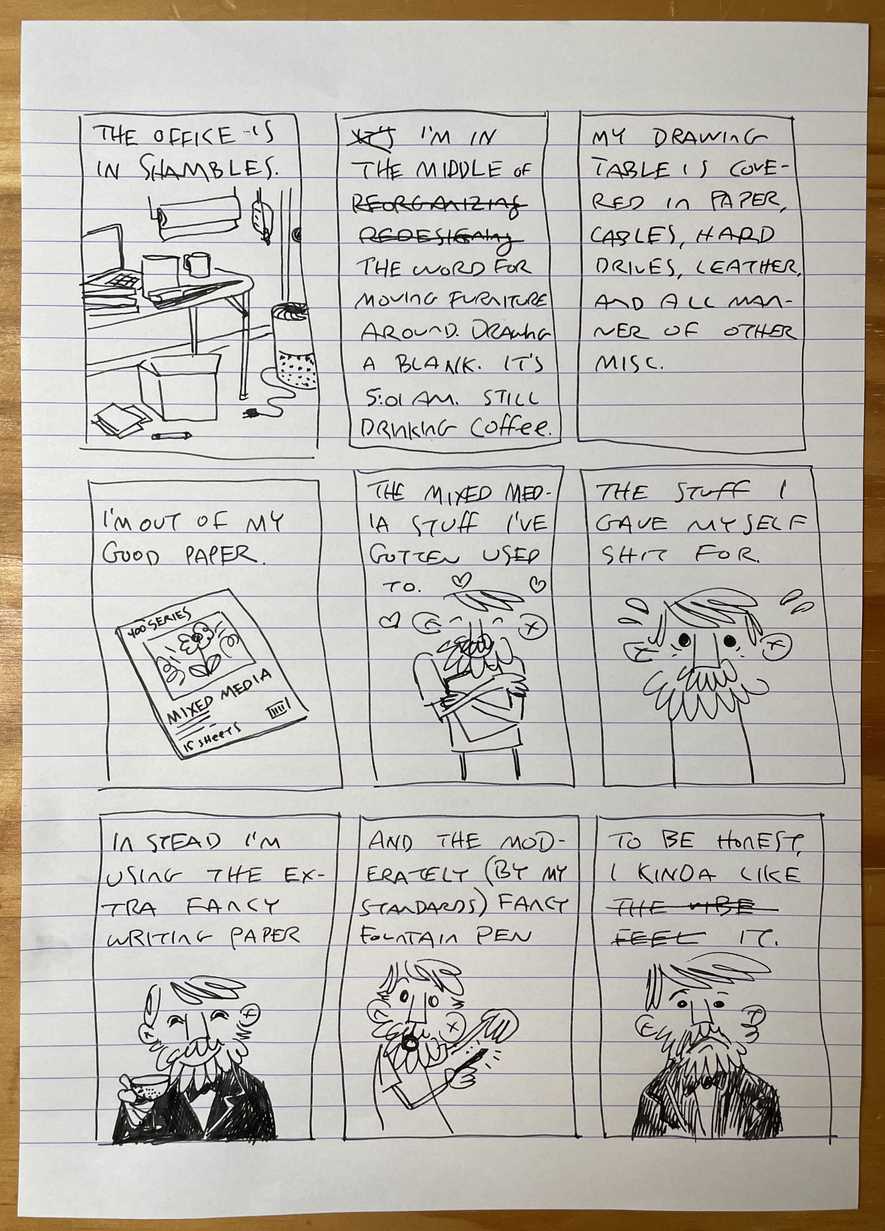 THE OFFICE IS
IN SHAMBLES.
IT'S I'M IN
THE MIDDLE OF
REORGANIZING
REDESIGNING
THE WORD FOR
MOVING FURNITURE
AROUND. DRAWING
A BLANK. IT'S
5:01 AM. STILL
DRINKING COFFEE.
MY DRAWING
TABLE IS COVE-
RED IN PAPER,
CABLES, HARD
DRIVES, LEATHER,
AND ALL MAN-
NER OF OTHER
MISC.
I'M OUT OF MY
GOOD PAPER.
400 SERIES
MIXED MEDIA
15 SHEETS
THE MIXED MED-
IA STUFF I'VE
GOTTEN USED
TO.
THE STUFF I
GAVE MYSELF
SHIT FOR.
IN STEAD I'M
USING THE EX-
TRA FANCY
WRITING PAPER
AND THE MOD-
ERATELY (BY MY
STANDARDS) FANCY
FOUNTAIN PEN
TO BE HONEST,
I KINDA LIKE
THE VIBE
FEEL IT.